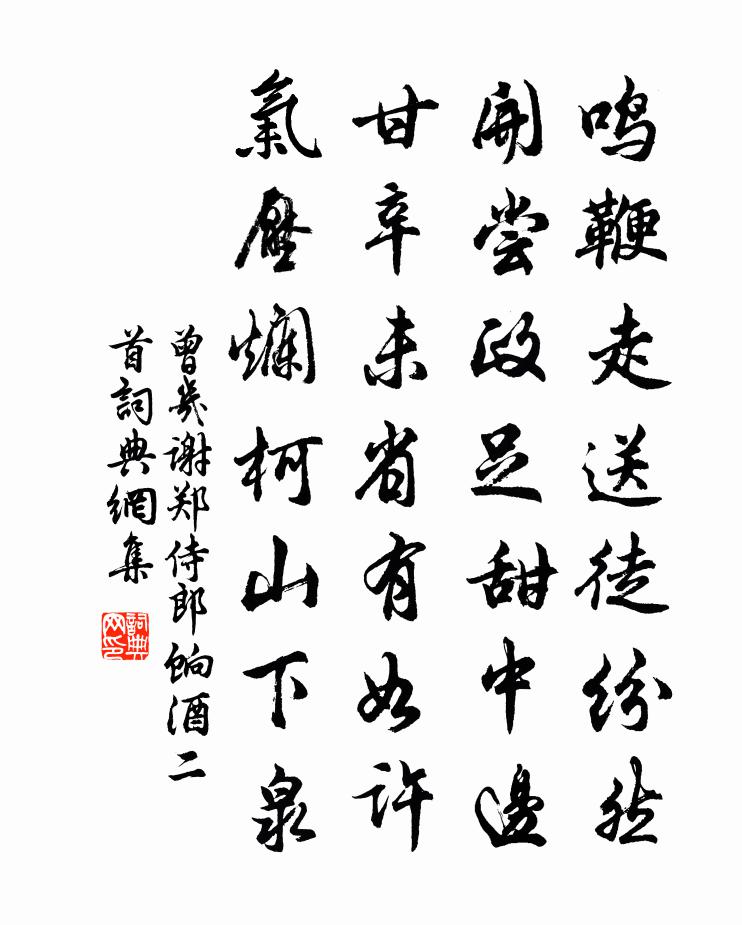 鸣鞭走送徒纷然
開尝政足甜中邊
甘辛未省有如许
氣壓爛柯山下泉
曾幾谢郑侍郎餉酒二
首詞典網集
詞典网印